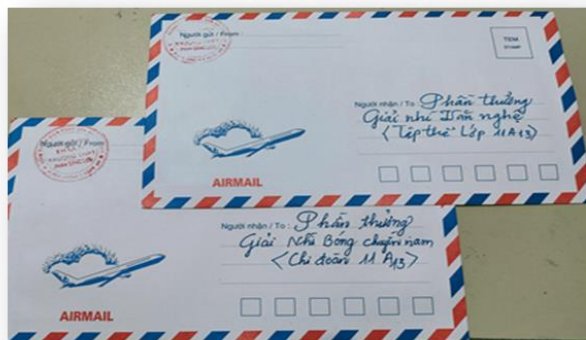 Người gửi / From :
TEM
STAMP
Người nhận / To : Phần thưởng
Giải nhì Văn nghệ
<"Tập thể" Lớp 11A13>
AIRMAIL
Người gửi / From
Người nhận / To : Phần thưởng
Giải Nhì Bóng chuyền nam
<Chi đoàn 11A13>
AIRMAIL